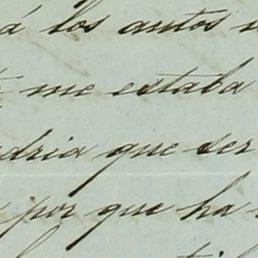 á los autos
me estaba
dria que ser
por que ha